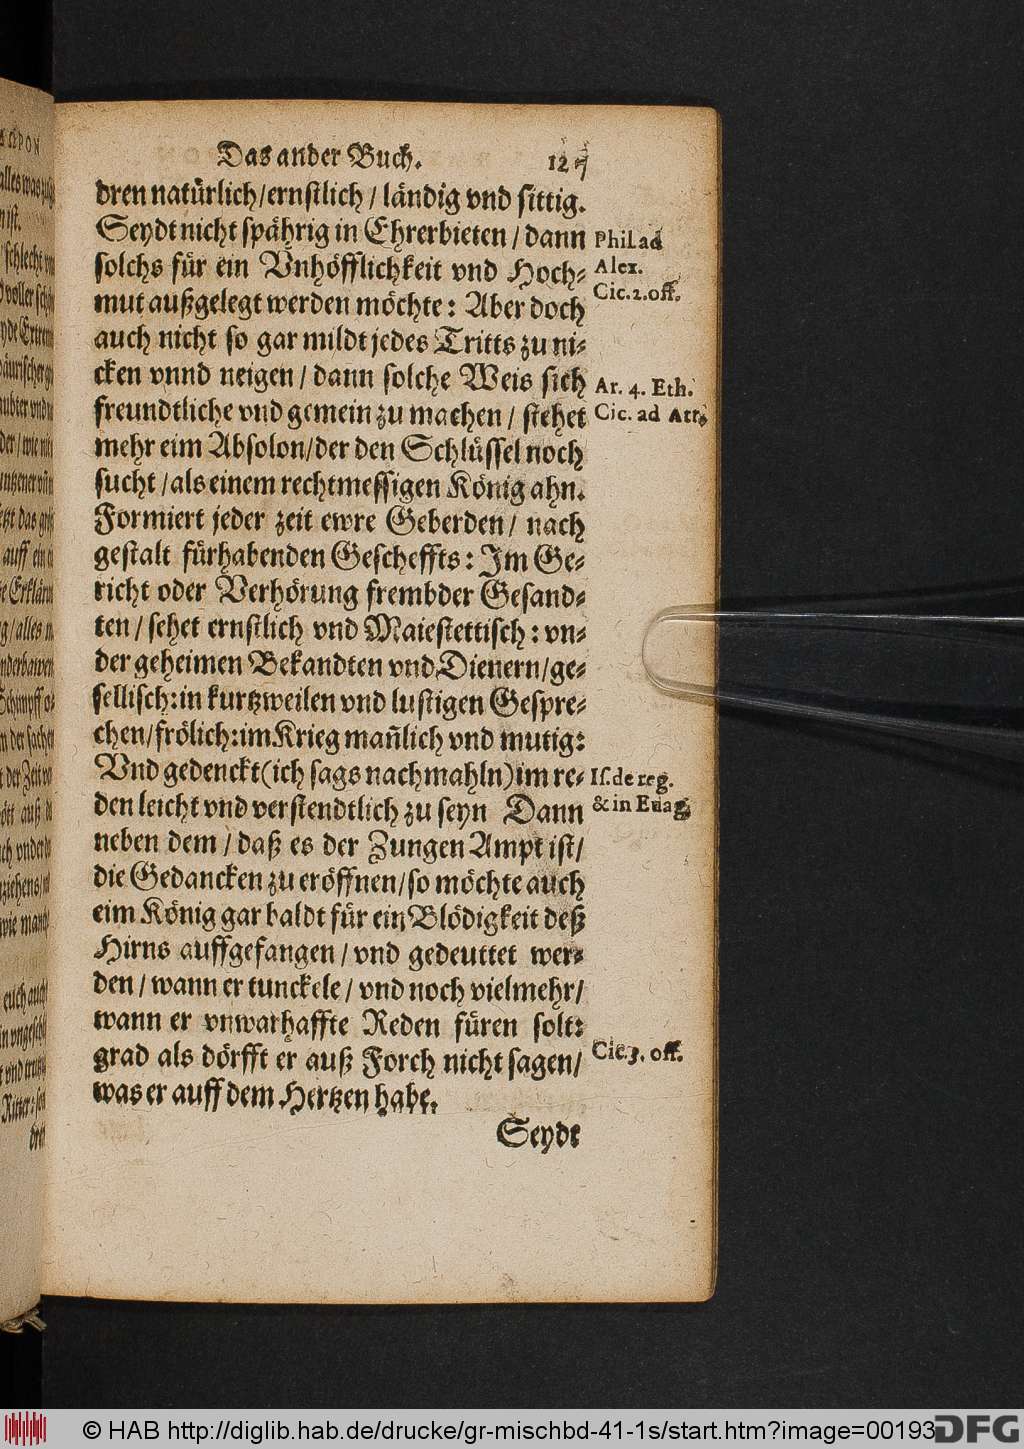 Das ander Buch. 127
dren natürlich/ernstlich/ ländig vnd sittig.
Seydt nicht spährig in Ehrerbieten/ dann
solchs für ein Vnhöfflichkeit vnd Hoch-
mut außgelegt werden möchte: Aber doch
auch nicht so gar mildt jedes Tritts zu ni-
cken vnnd neigen/ dann solche Weis sich
freundtliche vnd gemein zu machen/ stehet
mehr eim Absolon/der den Schlüssel noch
sucht/als einem rechtmessigen König ahn.
Formiert jeder zeit ewre Geberden/ nach
gestalt fürhabenden Gescheffts: Im Ge-
richt oder Verhörung frembder Gesand-
ten/ sehet ernstlich vnd Maiestettisch: vn-
der geheimen Bekandten vnd Dienern/ge-
sellisch: in kurtzweilen vnd lustigen Gespre-
chen/frölich: im Krieg mañlich vnd mutig:
Vnd gedenckt (ich sags nachmahln) im re-
den leicht vnd verstendtlich zu seyn Dann
neben dem/ daß es der Zungen Ampt ist/
die Gedancken zu eröffnen/so möchte auch
eim König gar baldt für ein Blödigkeit deß
Hirns auffgefangen/ vnd gedeuttet wer-
den/ wann er tunckele/ vnd noch vielmehr/
wann er vnwarhaffte Reden füren solt:
grad als dörfft er auß Forch nicht sagen/
was er auff dem Hertzen habe.
Seydt
Phil. ad
Alex.
Cic. 2. off.
Ar. 4. Eth.
Cic. ad Att.
Is. de reg.
& in Euag.
Cic. 3. off.
© HAB http://diglib.hab.de/drucke/gr-mischbd-41-1s/start.htm?image=00193
DFG